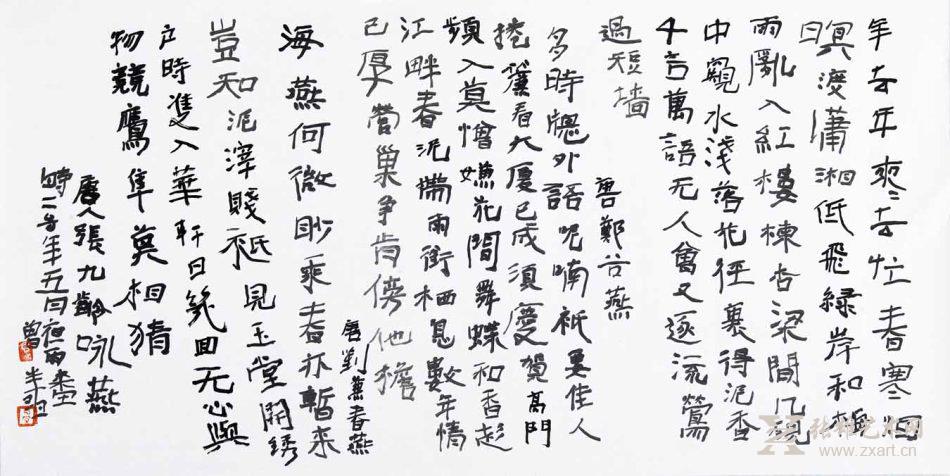 年去年來々去忙春寒烟
暝渡瀟湘低飛綠岸和梅
雨亂入紅樓棟杏梁間几硯
中窺水淺落花徑裏得泥香
千言萬語无人會又逐流鶯
過短墻
唐鄭谷燕
多時窗外語呢喃祇要佳人
捲簾看大廈已成須慶賀高門
頻入莫憎嫌花間舞蝶和香趁
江畔春泥帶雨銜栖息數年情
已厚營巢爭肯傍他檐
唐劉兼春燕
海燕何微眇乘春亦暫來
豈知泥滓賤祇見玉堂開綉
户時雙入華軒日幾回无心與
物競鷹隼莫相猜
唐人張九齡咏燕
年五月夜雨
曾
张雄艺术网
www.zxart.cn